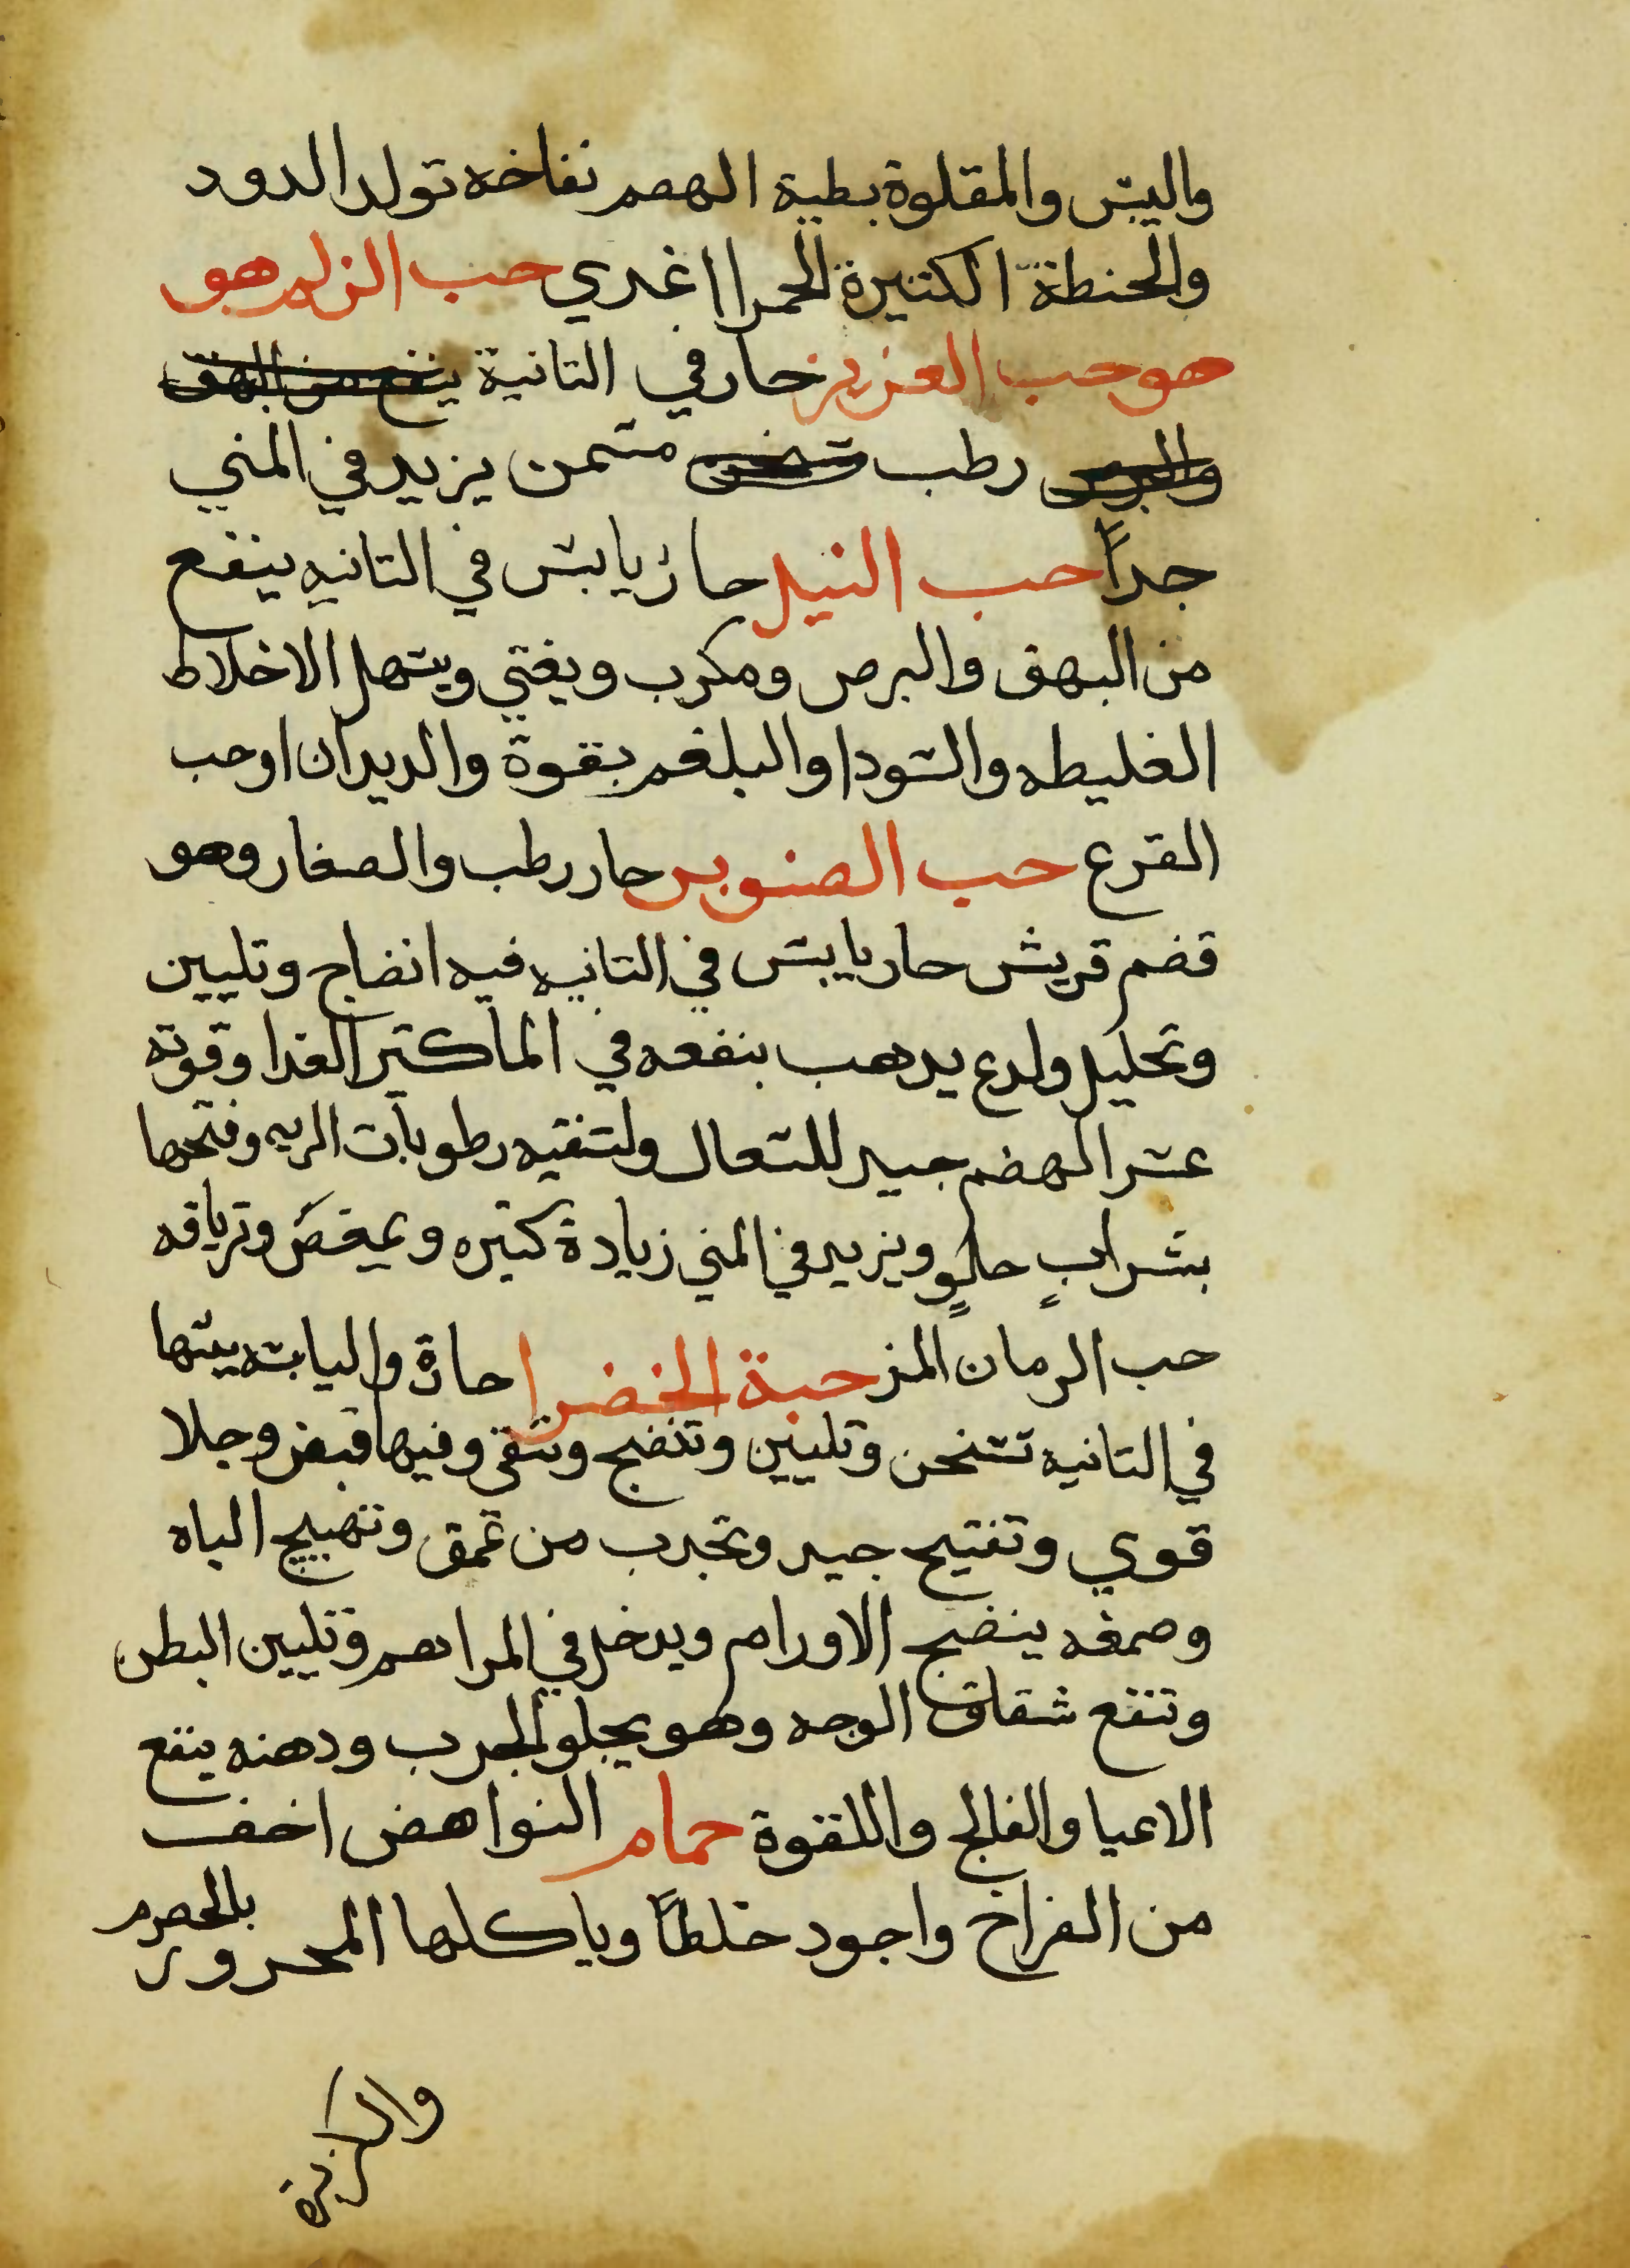 واليبس والمقلوة بطية الهصم نفاخه تولد الدود
والحنطة الكتيرة الحمرا اغدي حب الزلم هو
هو حب العزيز حار في التانية ينفع من البهق
والبرص رطب متسمن يزيد في المني
جداً حب النيل حار يابس في التانيه ينفع
من البهق والبرص ومكرب ويغتي ويسهل الاخلاط
الغليطه والسودا والبلغم بقوة والديدان اوحب
القرع حب الصنوبر حار رطب والصغار وهو
قضم قريش حار يابس في التانيه فيه انضاج وتليين
وتحليل ولدع يدهب بنفعه في الما كتير الغدا وقوته
عسر الهضم جيد للسعال ولتنقيه رطوبات الريه وفتحها
بشرابٍ حلوٍ ويزيد في المني زيادة كتيره ويمغص وترياقه
حب الرمان المز حبة الخضرا حارة واليابسه يبسها
في التانيه تسخن وتليين وتنضج وتنقي وفيها قبض وجلا
قوي وتفتيح جيد وتجدب من عمق وتهييج الباه
وصمغه ينضج الاورام ويدخل في المراهم وتليين البطن
وتنفع شقاق الوجه وهو يجلو الجرب ودهنه ينفع
الاعيا والفالج واللقوة حمام النواهض اخف
من الفراخ واجود خلطاً وياكلها المحرور بالحصرم
والكزبرة